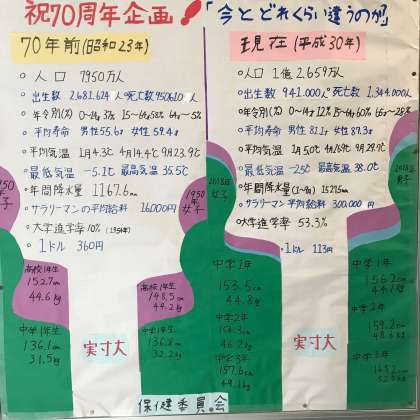 祝70周年企画 「今とどれくらい違うのか」
70年前(昭和23年)
○人口 7950万人
○出生数 2,681,624人○死亡数950610人
○年令別(%) 0~14才37% 15~64才58% 64才~5%
○平均寿命 男性55.6才 女性59.4才
○平均気温 1月4.3℃ 4月14.4℃ 9月23.9℃
○最低気温 -5.1℃ 最高気温35.5℃
○年間降水量 1167.6㎜
○サラリーマンの平均給料 16000円
○大学進学率10% (1954年)
○1ドル 360円
1950年男子
1950年女子
高校1年生
152.7cm
44.6kg
高校1年生
148.5cm
44.2kg
中学1年生
136.1cm
31.5kg
中学1年生
136.8cm
32.2kg
実寸大
現在(平成30年)
○人口 1億2,659万人
○出生数 941,000人○死亡数 1,344,000人
○年令別(%) 0~14才12% 15~64才60% 65才~28%
○平均寿命 男性81.1才 女性87.3才
○平均気温 1月5.0℃ 4月16.9℃ 9月22.9℃
○最低気温 -2.5℃ 最高気温38.0℃
○年間降水量(1~9月) 1521.5㎜
○サラリーマン平均給料 300,000円
○大学進学率 53.3%
○1ドル 113円
2018年女子
2018年男子
中学1年
153.5cm
44.8kg
中学2年
kg
中学3年
157.6cm
49.1kg
中学1年
156.2cm
44.1kg
中学2年
159.2cm
48.6kg
中学3年
165.2cm
kg
実寸大
保健委員会